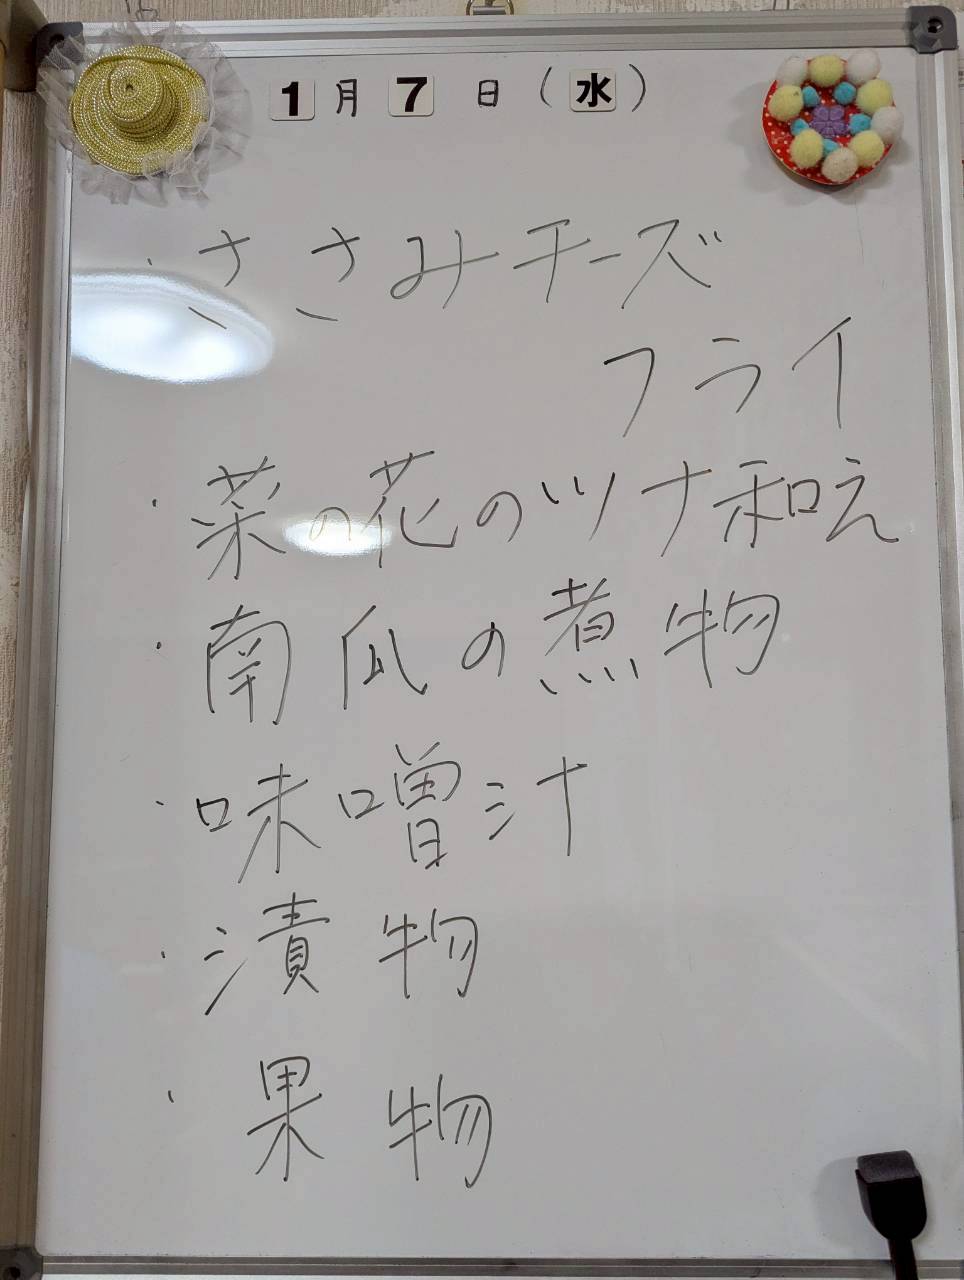 1月7日(水)
・ささみチーズ
フライ
・菜の花のツナ和え
・南瓜の煮物
・味噌汁
・漬物
・果物